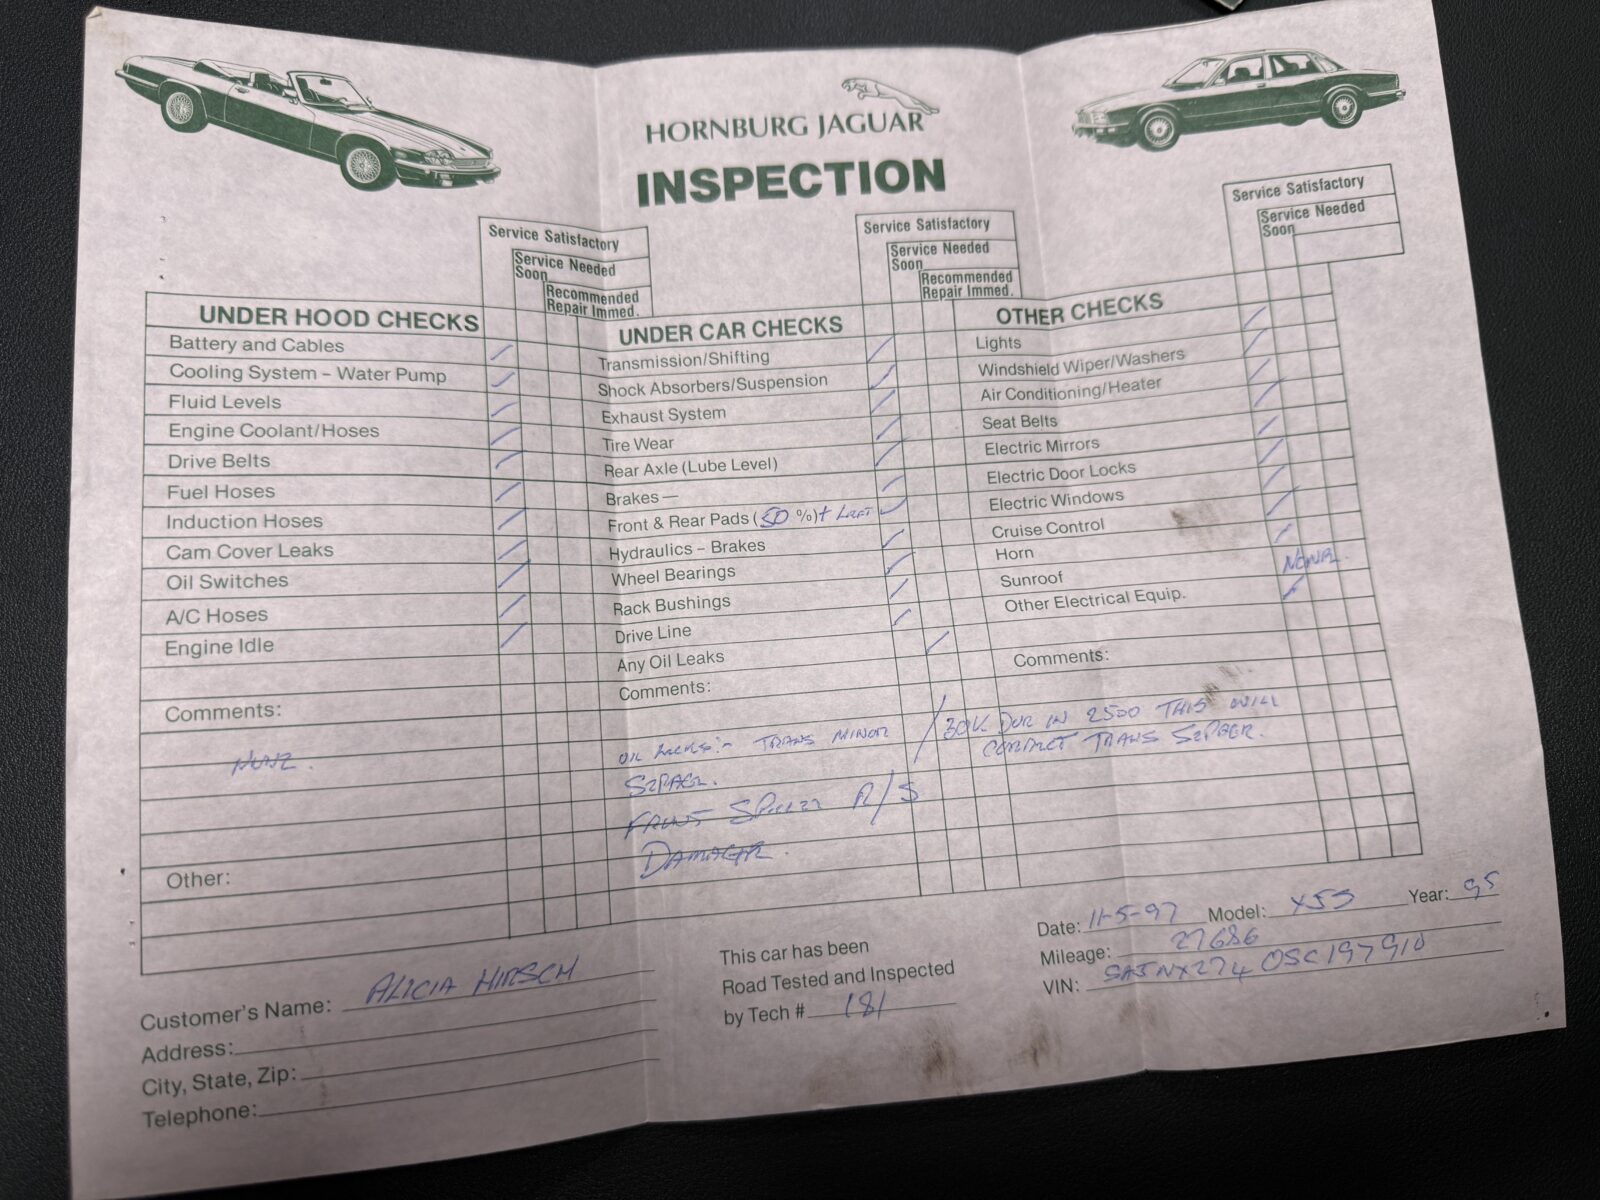 HORNBURG JAGUAR
INSPECTION
Service Satisfactory
Service Needed
Soon
Recommended
Repair Immed.
UNDER HOOD CHECKS
Battery and Cables
Cooling System – Water Pump
Fluid Levels
Engine Coolant/Hoses
Drive Belts
Fuel Hoses
Induction Hoses
Cam Cover Leaks
Oil Switches
A/C Hoses
Engine Idle
Comments:
NONE.
Other:
Service Satisfactory
Service Needed
Soon
Recommended
Repair Immed.
UNDER CAR CHECKS
Transmission/Shifting
Shock Absorbers/Suspension
Exhaust System
Tire Wear
Rear Axle (Lube Level)
Brakes —
Front & Rear Pads (50 %) + LEFT
Hydraulics – Brakes
Wheel Bearings
Rack Bushings
Drive Line
Any Oil Leaks
Comments:
OIL LEAKS:- TRANS MINOR
SEPAGE.
FRONT R/S
DAMAGE.
Service Satisfactory
Service Needed
Soon
OTHER CHECKS
Lights
Windshield Wiper/Washers
Air Conditioning/Heater
Seat Belts
Electric Mirrors
Electric Door Locks
Electric Windows
Cruise Control
Horn
Sunroof
Other Electrical Equip.
Comments:
/ 30K DUE IN 2500 THIS WILL
TRANS SEPAGE.
Customer's Name: ALICIA HIRSCH
Address:
City, State, Zip:
Telephone:
This car has been
Road Tested and Inspected
by Tech # 181
Date: 11-5-97 Model: XJS Year: 95
Mileage: 27686
VIN: SAJNX274 0SC197910